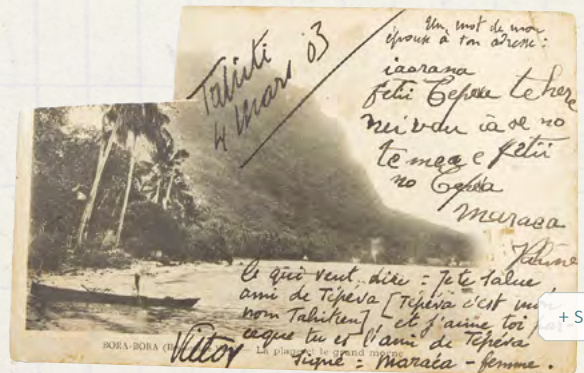 Tahiti
4 Mars 03
Un mot de mon
épouse à ton adresse :
iaorana
fetii Tepeva te here
nei vau ia oe no
te mea e fetii
no Tepeva
maraea
Vahine
Ce qui veut dire = Je te salue
ami de Tipéva [Tipéva c'est mon
nom Tahitien] et j'aime toi par
ceque tu es l'ami de Tepéva
Signé = Maraéa - femme.
Victor
BORA-BORA
La plage et le grand morne
+ S